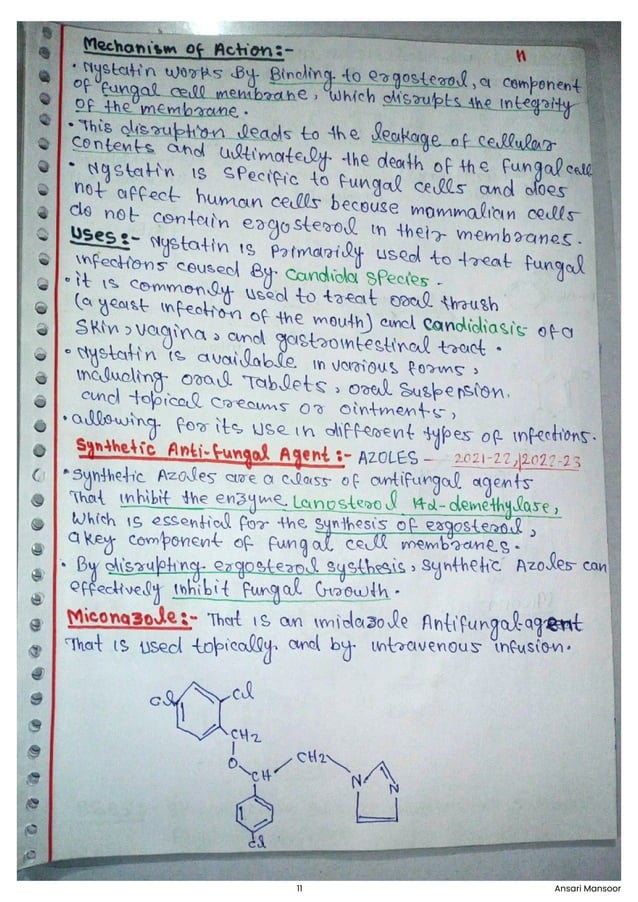 11
Mechanism of Action:-
• Nystatin works By Binding to ergosterol, a component
of fungal cell membrane, which disrupts the integrity
of the membrane.
• This disruption leads to the leakage of cellular
contents and ultimately the death of the fungal cell
• Nystatin is specific to fungal cells and does
not affect human cells becouse mammalian cells
do not contain ergosterol in their membranes.
Uses:- Nystatin is Primarily used to treat fungal
infections coused By Candida Species.
• it is commonly used to treat oral thrush
(a yeast infection of the mouth) and candidiasis of a
Skin, vagina, and gastrointestinal tract.
• Nystatin is available in various forms,
including oral Tablets, oral Suspension.
and topical creams or ointments,
• allowing for its use in different types of infections.
Synthetic Anti-fungal Agent:- AZOLES - 2021-22, 2022-23
• Synthetic Azoles are a class of antifungal agents
That inhibit the enzyme Lanosterol 14α-demethylase,
which is essential for the synthesis of ergosterol,
a key component of fungal cell membranes.
• By disrupting ergosterol systhesis, synthetic Azoles can
effectively inhibit fungal Growth.
Miconazole:- That is an imidazole Antifungal agent
That is used topically. and by intravenous infusion.
Cl Cl
CH2
O CH CH2 N N
Cl
11 Ansari Mansoor